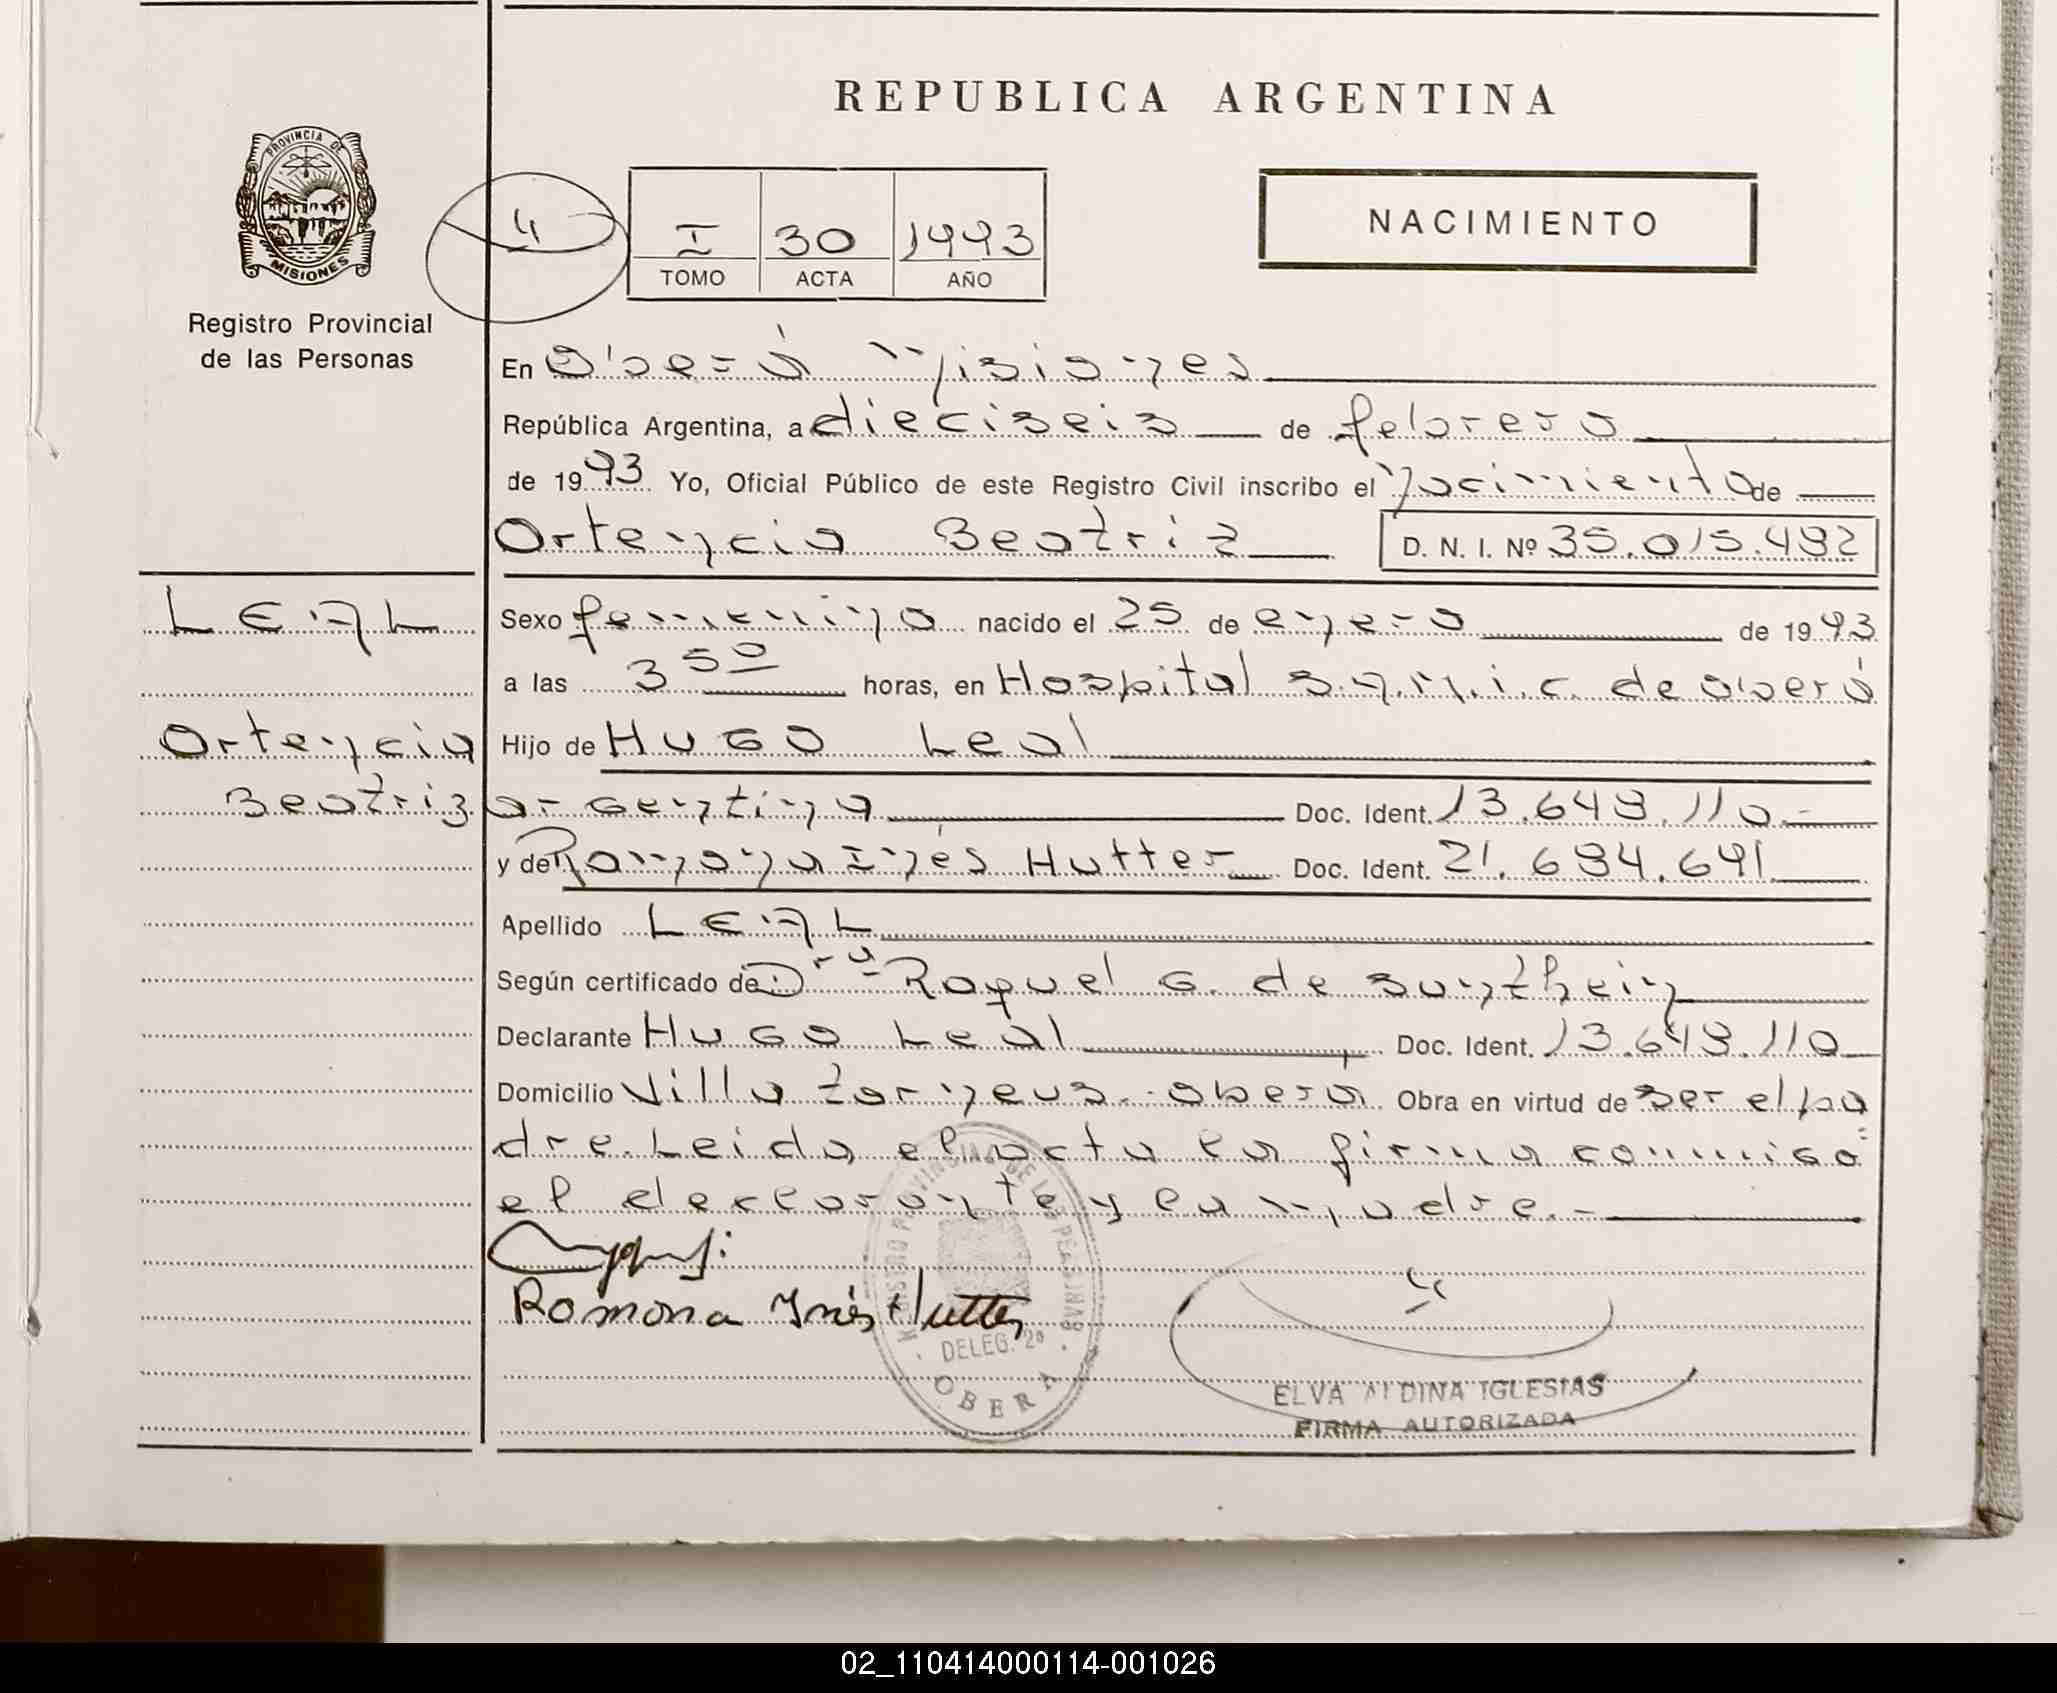 REPUBLICA ARGENTINA
PROVINCIA DE
MISIONES
Registro Provincial
de las Personas
I 30 1993
TOMO ACTA AÑO
NACIMIENTO
En Oberá Misiones
República Argentina, a dieciseis de febrero
de 1993 Yo, Oficial Público de este Registro Civil inscribo el nacimiento de
Ortencia Beatriz D. N. I. Nº 35.015.492
LEAL
Ortencia
Beatriz
Sexo femenino nacido el 25 de enero de 1993
a las 3 50 horas, en Hospital S.A.M.I.C. de Oberá
Hijo de Hugo Leal
argentina Doc. Ident. 13.649.110.-
y de Ramona Inés Hutter Doc. Ident. 21.694.641
Apellido LEAL
Según certificado de Dra Raquel G. de
Declarante Hugo Leal Doc. Ident. 13.649.110
Domicilio Villa Oberá Obra en virtud de ser el pa
dre. Leida el acta la firma conmigo
el declarante y la madre.-
Ramona Inés Hutter
REGISTRO PROVINCIAL DE LAS PERSONAS
DELEG. 2ª
OBERA
ELVA ALDINA IGLESIAS
FIRMA AUTORIZADA
02_110414000114-001026